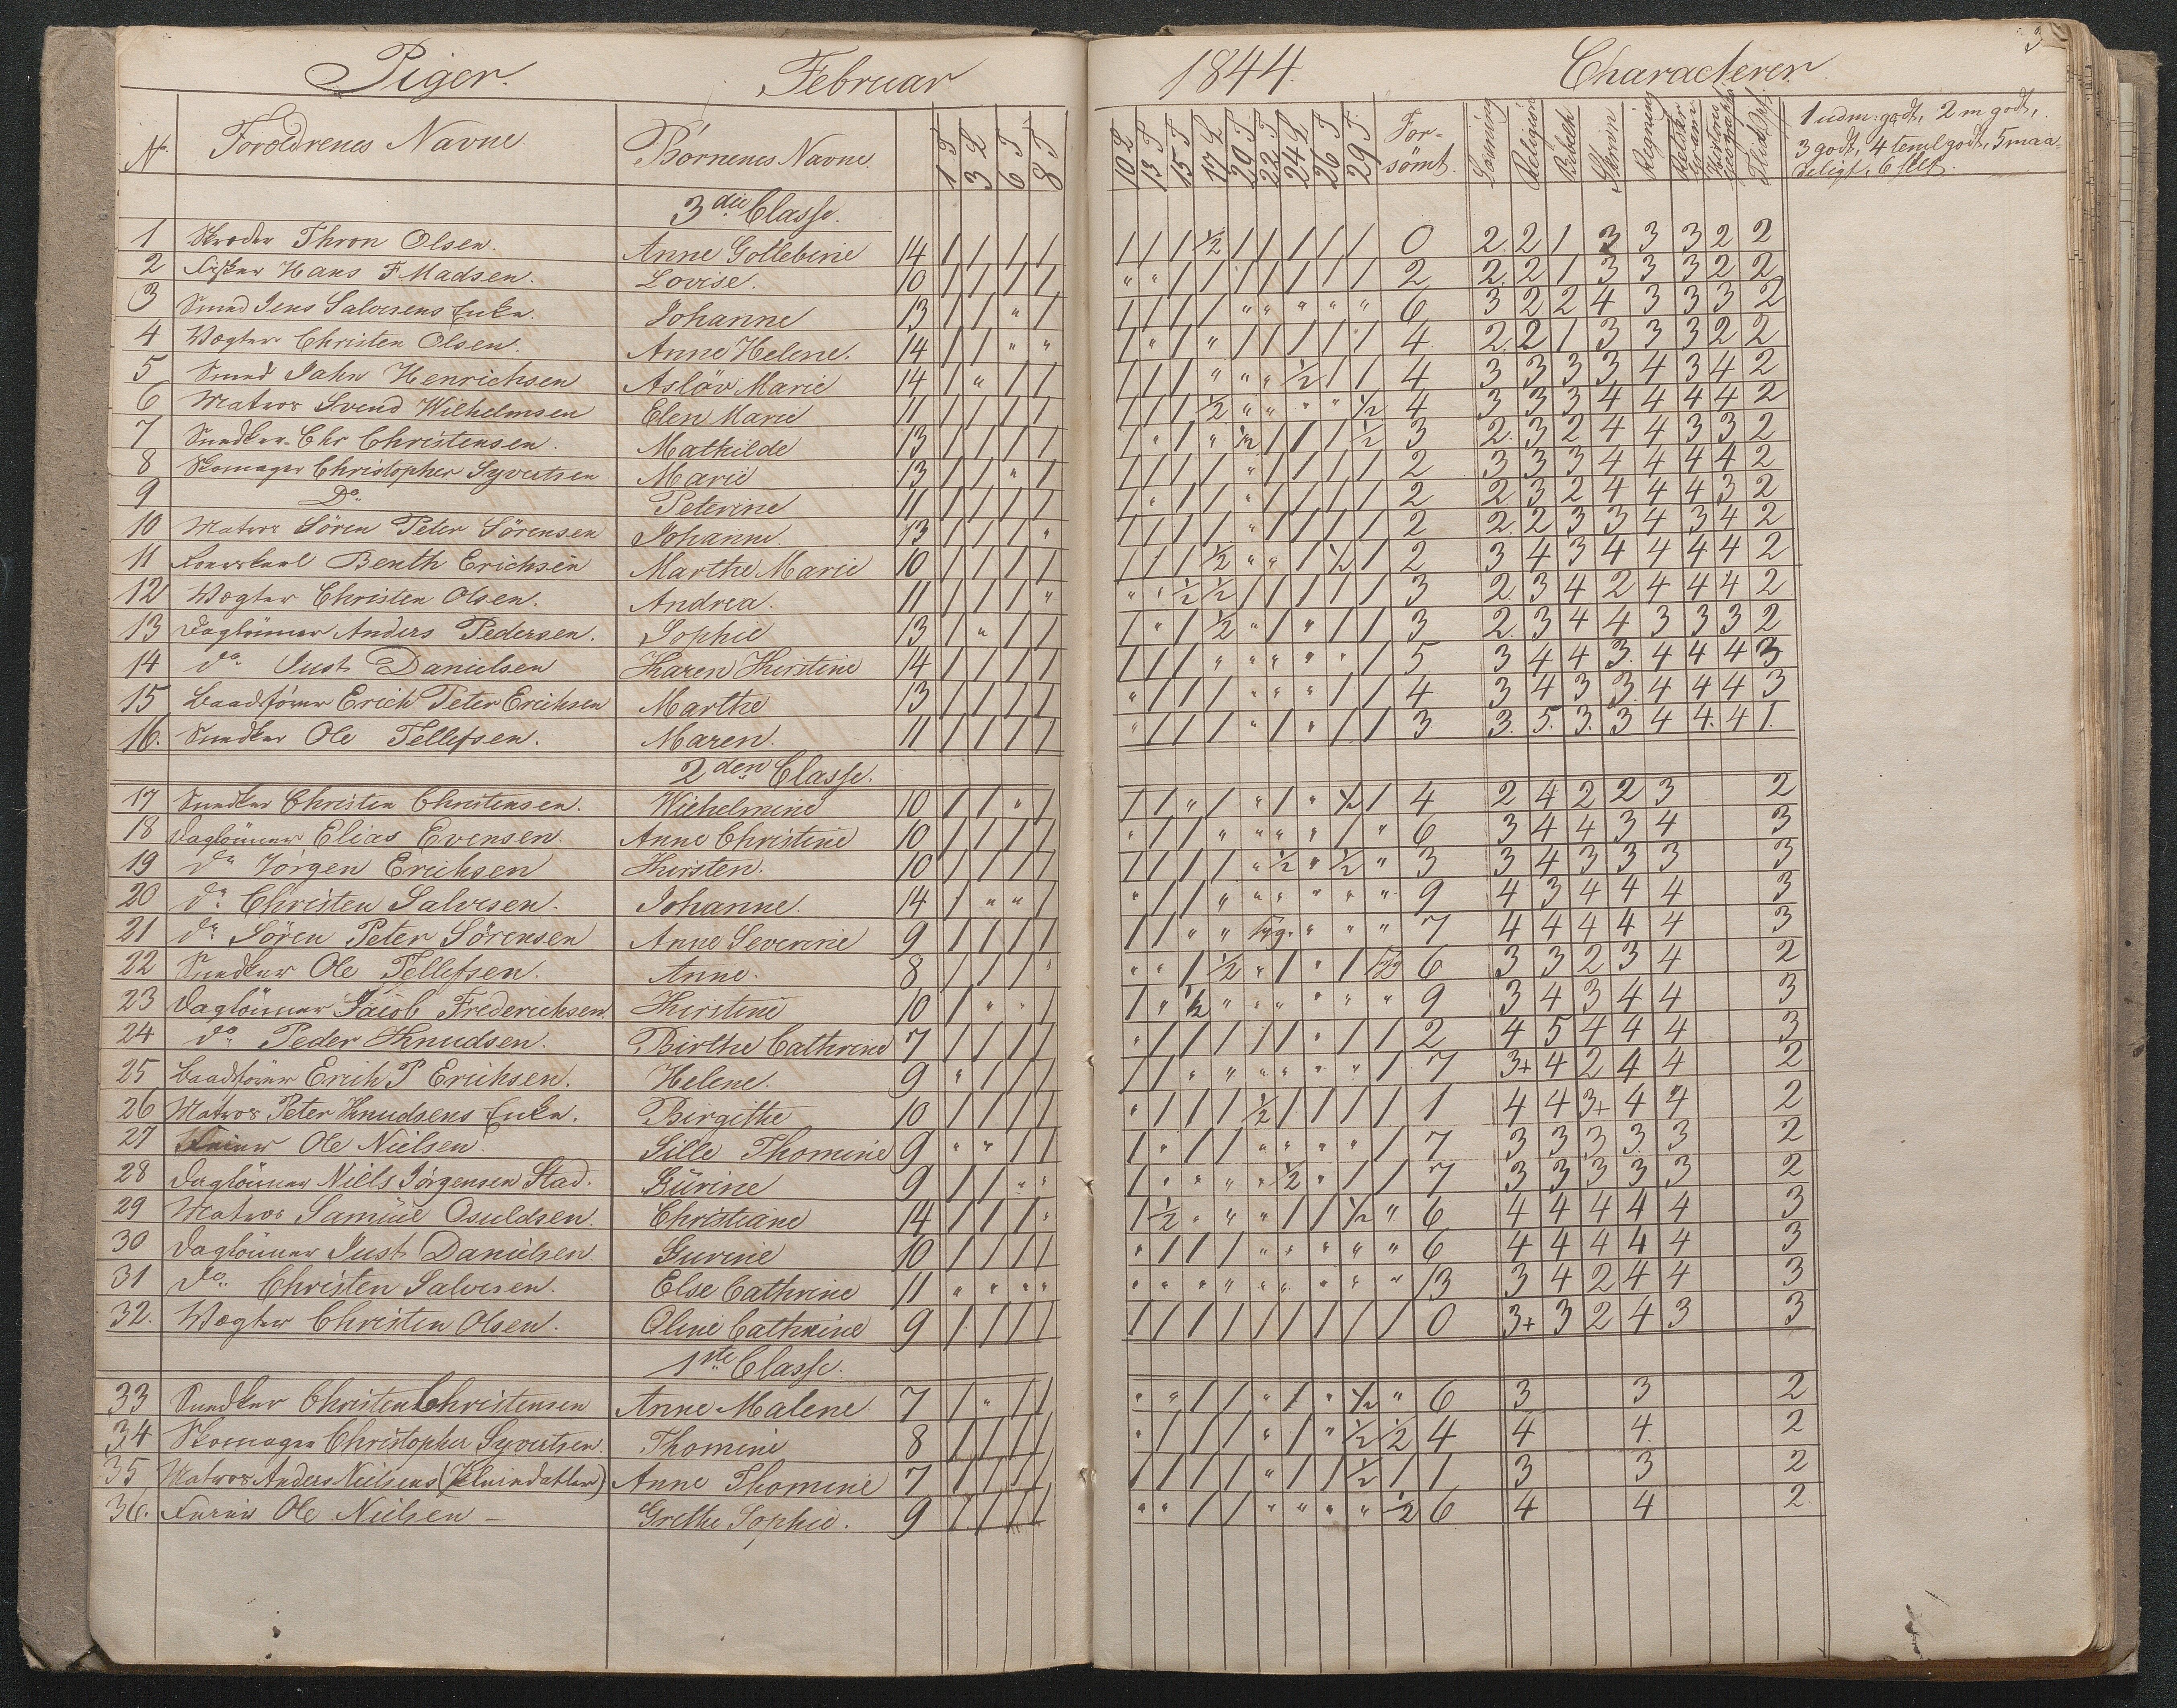 3
Piger. Februar 1844. Characterer
No. Foroldrenes Navne Börnenes Navne. 1 T 3 L 6 T 8 T 10 L 13 T 15 T 17 L 20 T 22 T 24 L 26 T 29 T. For-sömt. Læsning Religion Bibelh Skrivn Regning Retskr Gram: Historie Geographi Flid, Opf. 1 udm: godt, 2 m godt,
3 godt, 4 temel godt, 5 maa-
deligt, 6 slet.
3die Classe.
1 Skræder Thron Olsen. Anne Gollebine 14 / / / / / / / ½ / / / / / 0 2. 2 1 3 3 3 2 2
2 Fisker Hans F Madsen. Lovise. 10 / / / / " " / / / / / / / 2 2. 2 1 3 3 3 2 2
3 Smed Jens Salvesens Enke. Johanne 13 / / " / / / / / " " " " " 6 3 2 2 4 3 3 3 2
4 Vægter Christen Olsen. Anne Helene. 14 / / " " / " / " / / / / / 4. 2. 2 1 3 3 3 2 2
5 Smed Jahn Henrichsen Aslöv Marie 14 / " / / / / / " " " ½ / / 4 3 3 3 3 4 3 4 2
6 Matros Svend Wilhelmsen Elen Marie 11 / / / / / / / ½ " " " " ½ 4 3 3 3 4 4 4 4 2
7 Snedker Chr Christensen. Mathilde 13 / / / / / " / " ½ / / / ½ 3 2. 3 2 4 4 3 3 2
8 Skomager Christopher Syvertsen Marie 13 / / " / / / / / " / / / / 2 3 3 3 4 4 4 4 2
9 Do. Peterine 11 / / / / / " / / " / / / / 2 2. 3 2 4 4 4 3 2
10 Matros Sören Peter Sörensen Johanne. 13 / / / " / / / / " / / / / 2 2. 2 3 3 4 3 4 2
11 Benth Erichsen Marthe Marie 10 / / / / / / / ½ " " / ½ / 2 3 4 3 4 4 4 4 2
12 Vægter Christen Olsen. Andrea. 11 / / / " " " ½ ½ / / / / / 3 2. 3 4 2 4 4 4 2
13 Daglönner Anders Pedersen. Sophie 13 / " / / / " / ½ " / " / / 3 2. 3 4 4 3 3 3 2
14 do. Just Danielsen Karen Kirstine 14 / / / / / / / " " " " " / 5 3 4 4 3. 4 4 4 3
15 Baadförer Erich Peter Erichsen Marthe 13 / / / / " / / / " " " / / 4 3 4 3 3. 4 4 4 3
16. Snedker Ole Tellefsen. Maren. 11 / / / / " / / / " / " / / 3 3. 5. 3. 3 4 4. 4 1.
2den Classe.
17 Snedker Christen Christensen. Wilhelmine 10 / / " / / / " / " / " ½ / 4 2 4 2 2 3 2
18 Daglönner Elias Evensen. Anne Christine 10 / / / / " / / " " " " / " 6 3 4 4 3 4 3
19 do Jörgen Erichsen Kirsten. 10 / / / / / / / / " ½ " ½ " 3 3 4 3 3 3 3
20 do. Christen Salvesen. Johanne. 14 / " " / " / / " " " " " " 9 4 3 4 4 4 3
21 do. Sören Peter Sörensen Anne Severine 9 / / / / / / " " syg. " " " 7 4 4 4 4 4 3
22 Snedker Ole Tellefsen. Anne. 8 / / / " " " / ½ " / " / ½ 6 3 3 2 3 4 2
23 Daglönner Jacob Frederichsen. Kirstine 10 / " " / / " ½ " " " " " " 9 3 4 3 4 4 3
24 do. Peder Knudsen. Birthe Cathrine 7 / / / / " / / / / / " / / 2 4 5 4 4 4 3
25 Baadförer Erich P Erichsen. Helene. 9 " / / / / / " " " " " " / 7 3+ 4 2 4 4 2
26 Matros Peter Knudsens Enke. Birgithe 10 / / / / " / / / ½ / / / / 1 4 4 3+ 4 4 2
27 Ole Nielsen. Sille Thomine 9 " " / / / " / / " " " " / 7 3 3 3 3 3 2
28 Daglönner Niels Jörgensen Stad. Gürine 9 / / " " / " " " " ½ " / / 7 3 3 3 3 3 2
29 Matros Samüel Osuldsen. Christiane 14 / / / " / ½ " " " / / ½ " 6 4 4 4 4 4 3
30 Daglönner Just Danielsen. Gurine 10 / / / / " / / / " " " " " 6 4 4 4 4 4 3
31 do.. Christen Salvesen. Else Cathrine 11 " " " " " " " " " " " " " 13 3 4 2 4 4 3
32. Vægter Christen Olsen. Oline Cathrine 9 / / / / / / / / / / / / / 0 3+ 3 2 4 3 3
1ste Classe.
33 Snedker Christen Christensen Anne Malene. 7 / " / / " " / / " / " ½ " 6 3 3 2
34 Skomager Christopher Syvertsen. Thomine 8 / / / / " / / / " / " ½ ½ 4 4 4. 2
35 Matros Anders Nielsens (Pleiedatter) Anne Thomine 7 / / / / / / / / " / / ½ / 1 3 3 2
36. Ole Nielsen – Grethe Sophie. 9 / / / / " " / / " " " " ½ 6 4 4 2.